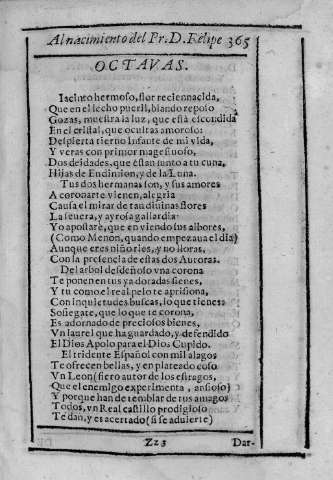 Al nacimiento del Pr. D. Felipe 365
OCTAVAS.
Iacinto hermoso, flor recien nacida,
Que en el lecho pueril, blando reposo
Gozas, muestra la luz, que està escondida
En el cristal, que ocultas amoroso:
Despierta tierno Infante de mi vida,
Y veras con primor magestuoso,
Dos deidades, que estan junto a tu cuna,
Hijas de Endimion, y de la Luna.
Tus dos hermanas son, y sus amores
A coronarte vienen, alegria
Causa el mirar de tan diuinas flores
La seuera, y ayrosa gallardia:
Yo apostarè, que en viendo sus albores,
(Como Menon, quando empezaua el dia)
Aunque eres niño ries, y no lloras,
Con la presencia de estas dos Auroras.
Del arbol desdeñoso vna corona
Te ponen en tus ya doradas sienes,
Y tu como el real pelo te aprisiona,
Con inquietudes buscas, lo que tienes:
Sossiegate, que lo que te corona,
Es adornado de preciosos bienes,
Vn laurel que ha guardado, y defendido
El Dios Apolo para el Dios Cupido.
El tridente Español con mil alagos
Te ofrecen bellas, y en plateado coso
Vn Leon (fiero autor de los estragos,
Que el enemigo experimenta, ansioso)
Y porque han de temblar de tus amagos
Todos, vn Real castillo prodigioso
Te dan, y es acertado (si se aduierte)
Zz 3 Dar-